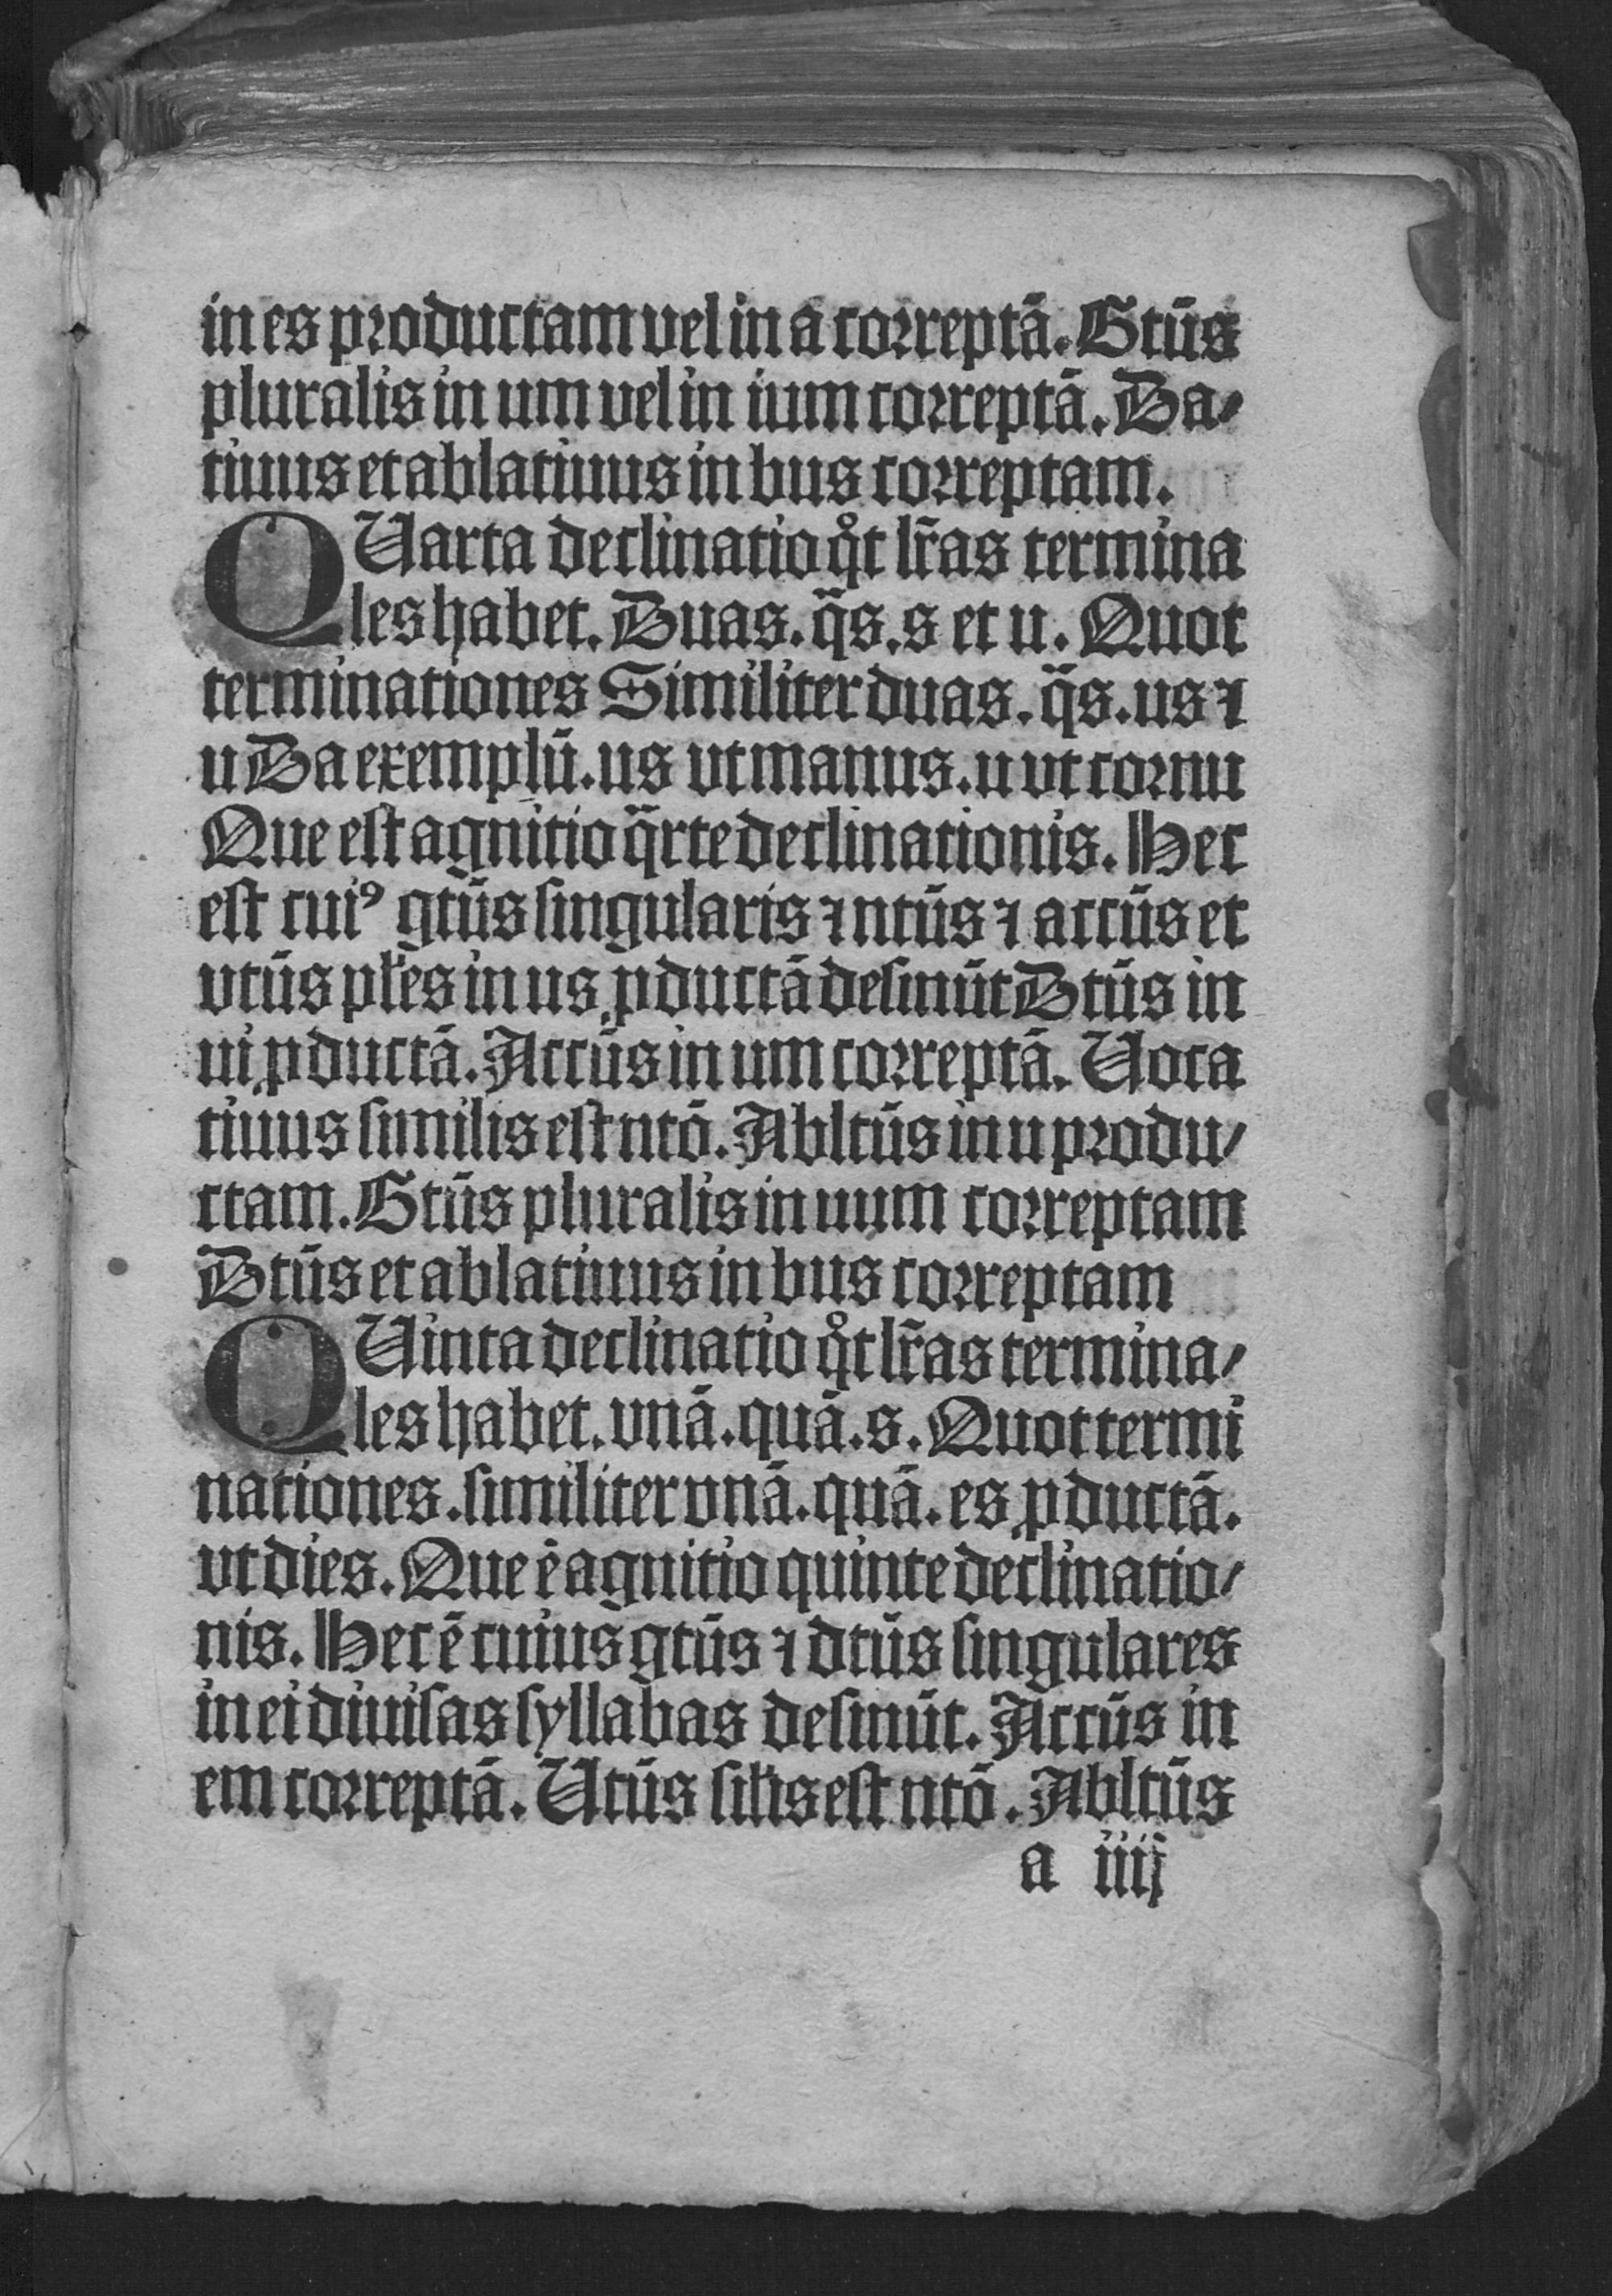 in es productam vel in a correptā. Gtūs
pluralis in um vel in ium correptā. Da⸗
tiuus et ablatiuus in bus correptam.
QUarta declinatio qͦt lr̄as termina
les habet. Duas. q̈s. s et u. Quot
terminationes Similiter duas. q̈s. us ⁊
u Da exemplū. us vt manus. u vt cornu
Que est agnitio q̈rte declinationis. Hec
est cuiꝰ gtūs singularis ⁊ ntūs ⁊ accūs et
vtūs pl̄es in us ꝓductā desinūt Dtūs in
ui ꝓductā. Accūs in um correptā. Uoca
tiuus similis est ntō. Abltūs in u produ/
ctam. Gtūs pluralis in uum correptam
Dtūs et ablatiuus in bus correptam
QUinta declinatio qͦt lr̄as termina/
les habet. vnā. quā. s. Quot termi
nationes. similiter vnā. quā. es ꝓductā.
vt dies. Que ē agnitio quinte declinatio/
nis. Hec ē cuius gtūs ⁊ dtūs singulares
in ei diuisas syllabas desinūt. Accūs in
em correptā. Utūs sil̄is est ntō. Abltūs
a iiij